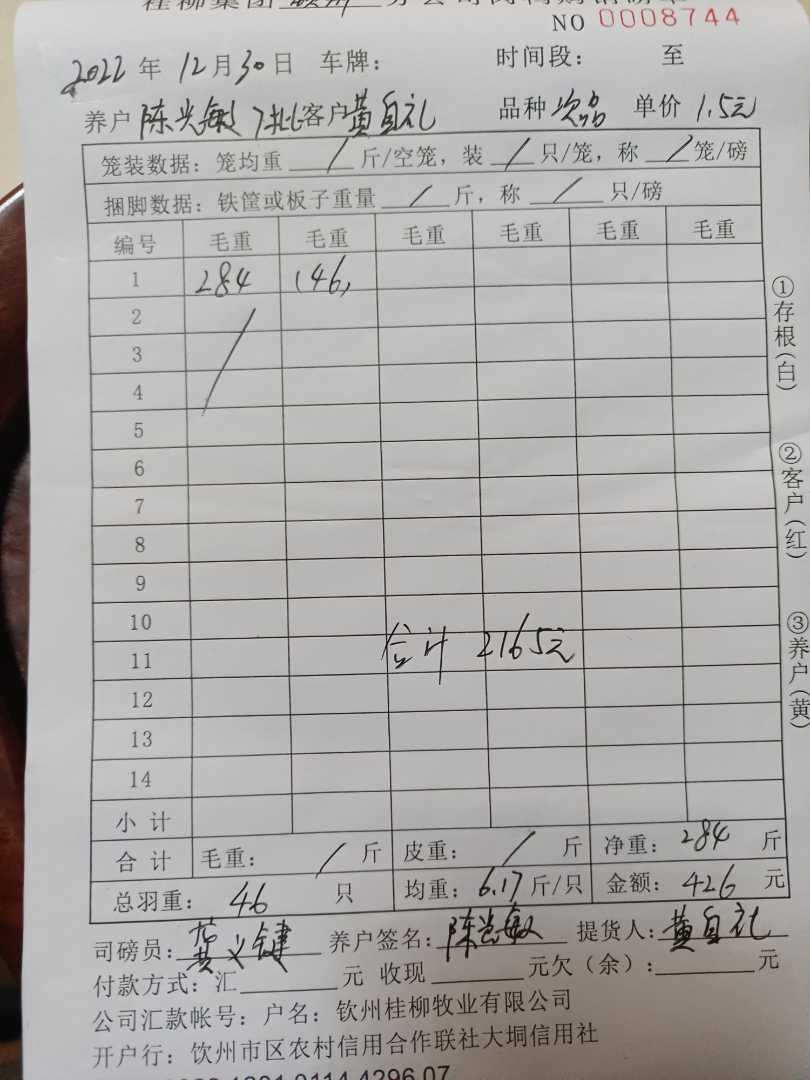 桂柳集团 钦州 分公司肉鸭购销磅单
NO 0008744
2022 年 12 月 30 日 车牌： 时间段： 至
养户 陈光敏 7批 客户 黄自礼 品种 次品 单价 1.5元
笼装数据：笼均重 / 斤/空笼，装 / 只/笼，称 / 笼/磅
捆脚数据：铁筐或板子重量 / 斤，称 / 只/磅
编号 毛重 毛重 毛重 毛重 毛重 毛重
1 284 (46)
2
3
4
5
6
7
8
9
10
11 合计 2165元
12
13
14
小计
合计 毛重： / 斤 皮重： / 斤 净重：284 斤
总羽重：46 只 均重：6.17 斤/只 金额：426 元
司磅员：黄义键 养户签名：陈光敏 提货人：黄自礼
付款方式：汇 元 收现 元欠（余）： 元
公司汇款帐号：户名：钦州桂柳牧业有限公司
开户行：钦州市区农村信用合作联社大垌信用社
①存根（白）
②客户（红）
③养户（黄）